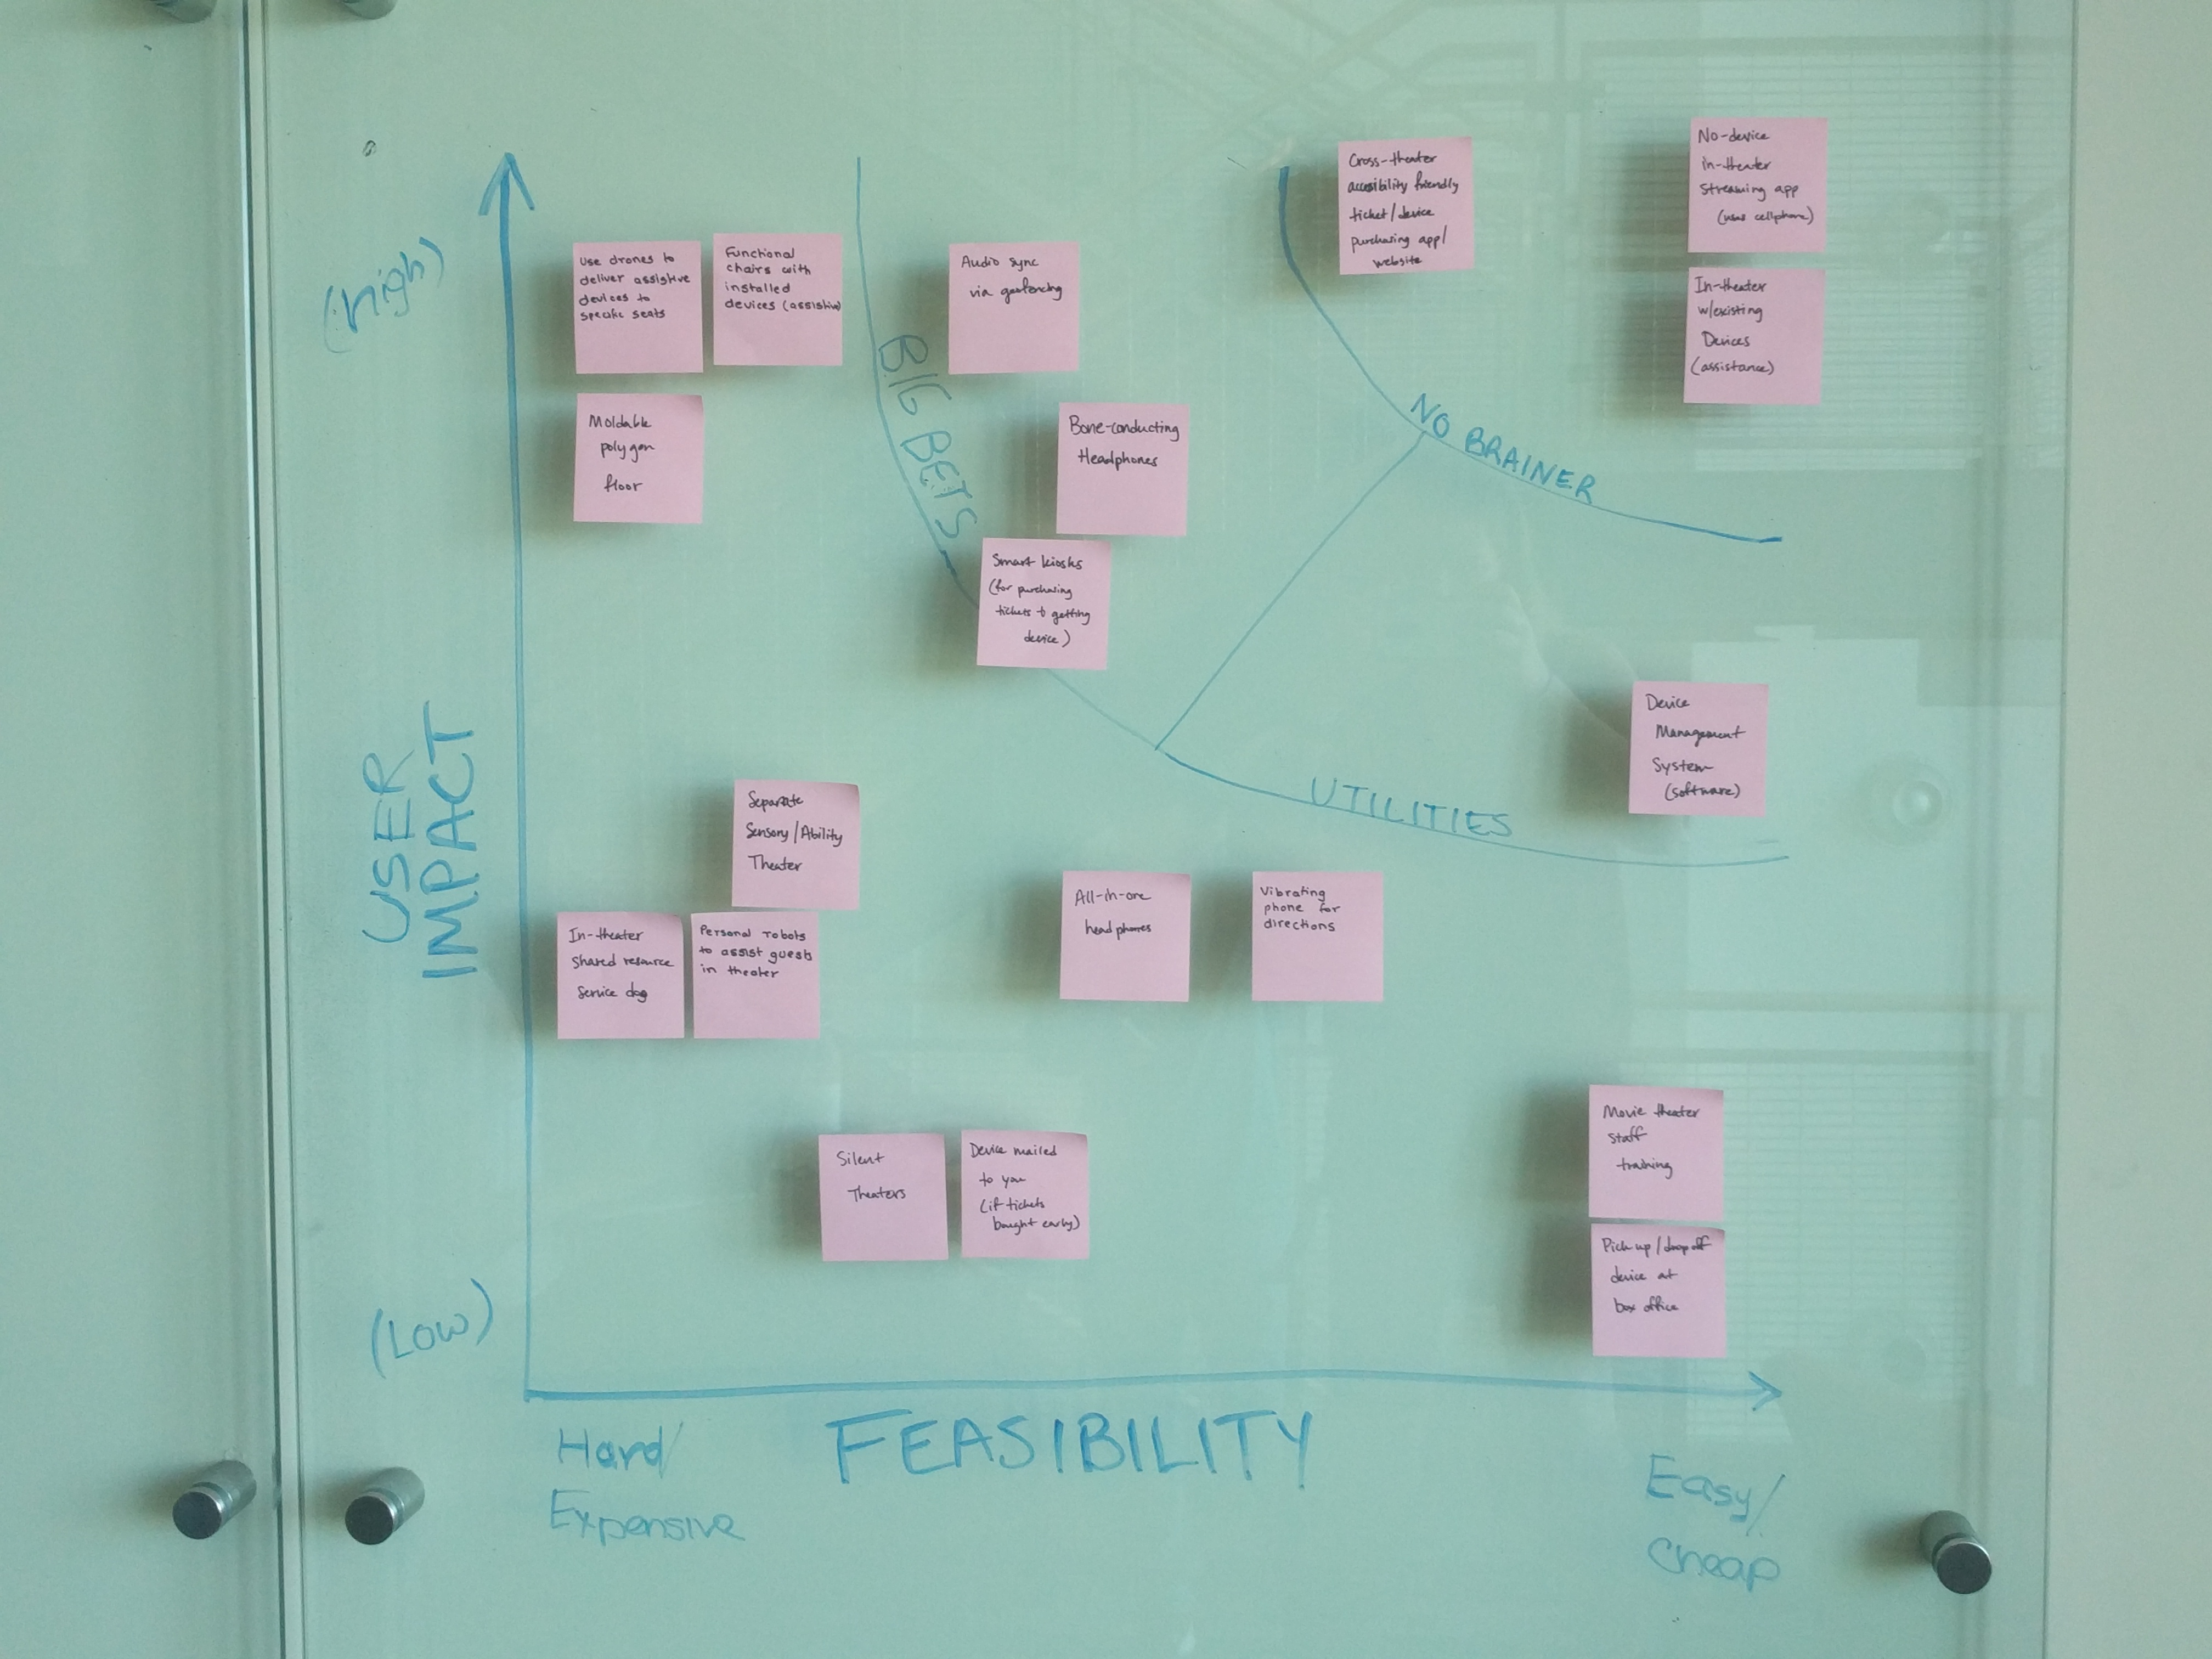 (high)
USER
IMPACT
(Low)
Use drones to
deliver assistive
devices to
specific seats
Functional
chairs with
installed
devices (assistive)
Moldable
polygon
floor
Audio sync
via geofencing
BIG BETS
Bone-conducting
Headphones
Smart kiosks
(for purchasing
tickets & getting
device)
Cross-theater
accesibility friendly
ticket/device
purchasing app/
website
No-device
in-theater
streaming app
(uses cellphone)
In-theater
w/existing
Devices
(assistance)
NO BRAINER
Device
Management
System
(software)
UTILITIES
Separate
Sensory/Ability
Theater
In-theater
shared resource
service dog
Personal robots
to assist guests
in theater
All-in-one
headphones
Vibrating
phone for
directions
Silent
Theaters
Device mailed
to you
(if tickets
bought early)
Movie theater
staff
training
Pick up/drop off
device at
box office
Hard/
Expensive
FEASIBILITY
Easy/
Cheap